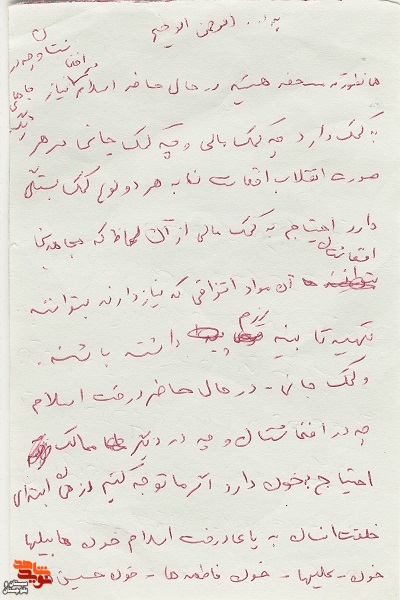 به ... الرحمن الرحیم
همانطور که متوجه هستید در حال حاضر اسلام نیاز
چه در افغانستان و چه در جاهای دیگر
به کمک دارد چه کمک مالی و چه کمک جانی در هر
صورت انقلاب افغانستان به هر دو نوع کمک بستگی
دارد احتیاج به کمک مالی از آن لحاظ که مجاهدین
افغانستان آن مواد انزاقی که نیاز دارند بتوانند
تهیه تا بنیه رزم داشته باشند.
و کمک جانی - در حال حاضر درخت اسلام
چه در افغانستان و چه در دیگر ممالک
احتیاج بخون دارد اگر ما توجه کنیم از همان ابتدای
خلقت انسان به پای درخت اسلام خون هابیلها
خون - علیها - خون فاطمه ها - خون حسین ها
شاهد
نوید
سیستان و بلوچستان